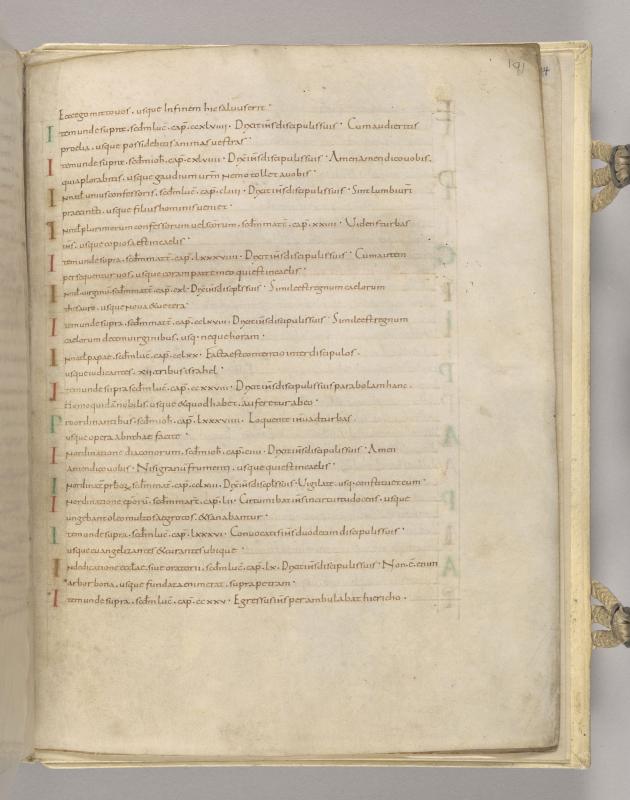 191
Ecce ego mitto vos . usque In finem hic salvus erit .
Item unde supra . secdm luc . cap . ccxlviiii . Dixit ihs discipulis suis . Cum audieritis
proelia . usque possidebitis animas vestras .
Item unde supra . secdm ioh . cap . cxlviiii . Dixit ihs discipulis suis . Amen amen dico vobis .
quia plorabitis . usque gaudium urm nemo tollet a vobis .
In natl unius confessoris . secdm luc . cap . clvii . Dixit ihs discipulis suis . Sint lumbi uri
praecincti . usque filius hominis veniet .
In natl plurimorum confessorum vel scorum . secdm matt . cap . xxiii . Videns turbas
ihs . usque copiosa est in caelis .
Item unde supra . secdm matt . cap . lxxxviiii . Dixit ihs discipulis suis . Cum autem
persequentur vos . usque coram patre meo qui est in caelis .
In natl virginum . secdm matt . cap . cxl . Dixit ihs disciplis suis . Simile est regnum caelorum
thesauro . usque nova & vetera .
Item unde supra . secdm matt . cap . cclxviii . Dixit ihs discipulis suis . Simile est regnum
caelorum decem virginibus . usq . neque horam .
In natl papae . secdm luc . cap . cclxx . Facta est contentio inter discipulos .
usque iudicantes . xii . tribus israhel .
Item unde supra secdm luc . cap . ccxxviii . Dixit ihs discipulis suis parabolam hanc .
Homo quidam nobilis . usque & quod habet . auferetur ab eo .
Pro ordinantibus . secdm ioh . cap . lxxxviii . Loquente ihu ad turbas .
usque opera abrahae facite .
In ordinatione diaconorum . secdm ioh . cap . ciiii . Dixit ihs discipulis suis . Amen
amen dico vobis . Nisi granum frumenti . usque qui est in caelis .
In ordinat prborum . secdm mat . cap . cclxii . Dixit ihs discipulis suis . Vigilate . usq . constituet eum .
In ordinatione eporum . secdm marc . cap . lii . Circumibat ihs in circuitu docens . usque
ungebant oleo multos aegrotos . & sanabantur .
Item unde supra . secdm luc . cap . lxxxvi . Convocatis ihs duodecim discipulis suis .
usque evangelizantes & curantes ubique .
In dedicatione eccliae . sive oratorii . secdm luc . cap . lx . Dixit ihs discipulis suis . Non . e . enim
arbor bona . usque fundata enim erat . supra petram .
Item unde supra . secdm luc . cap . ccxxv . Egressus ihs perambulabat hiericho .